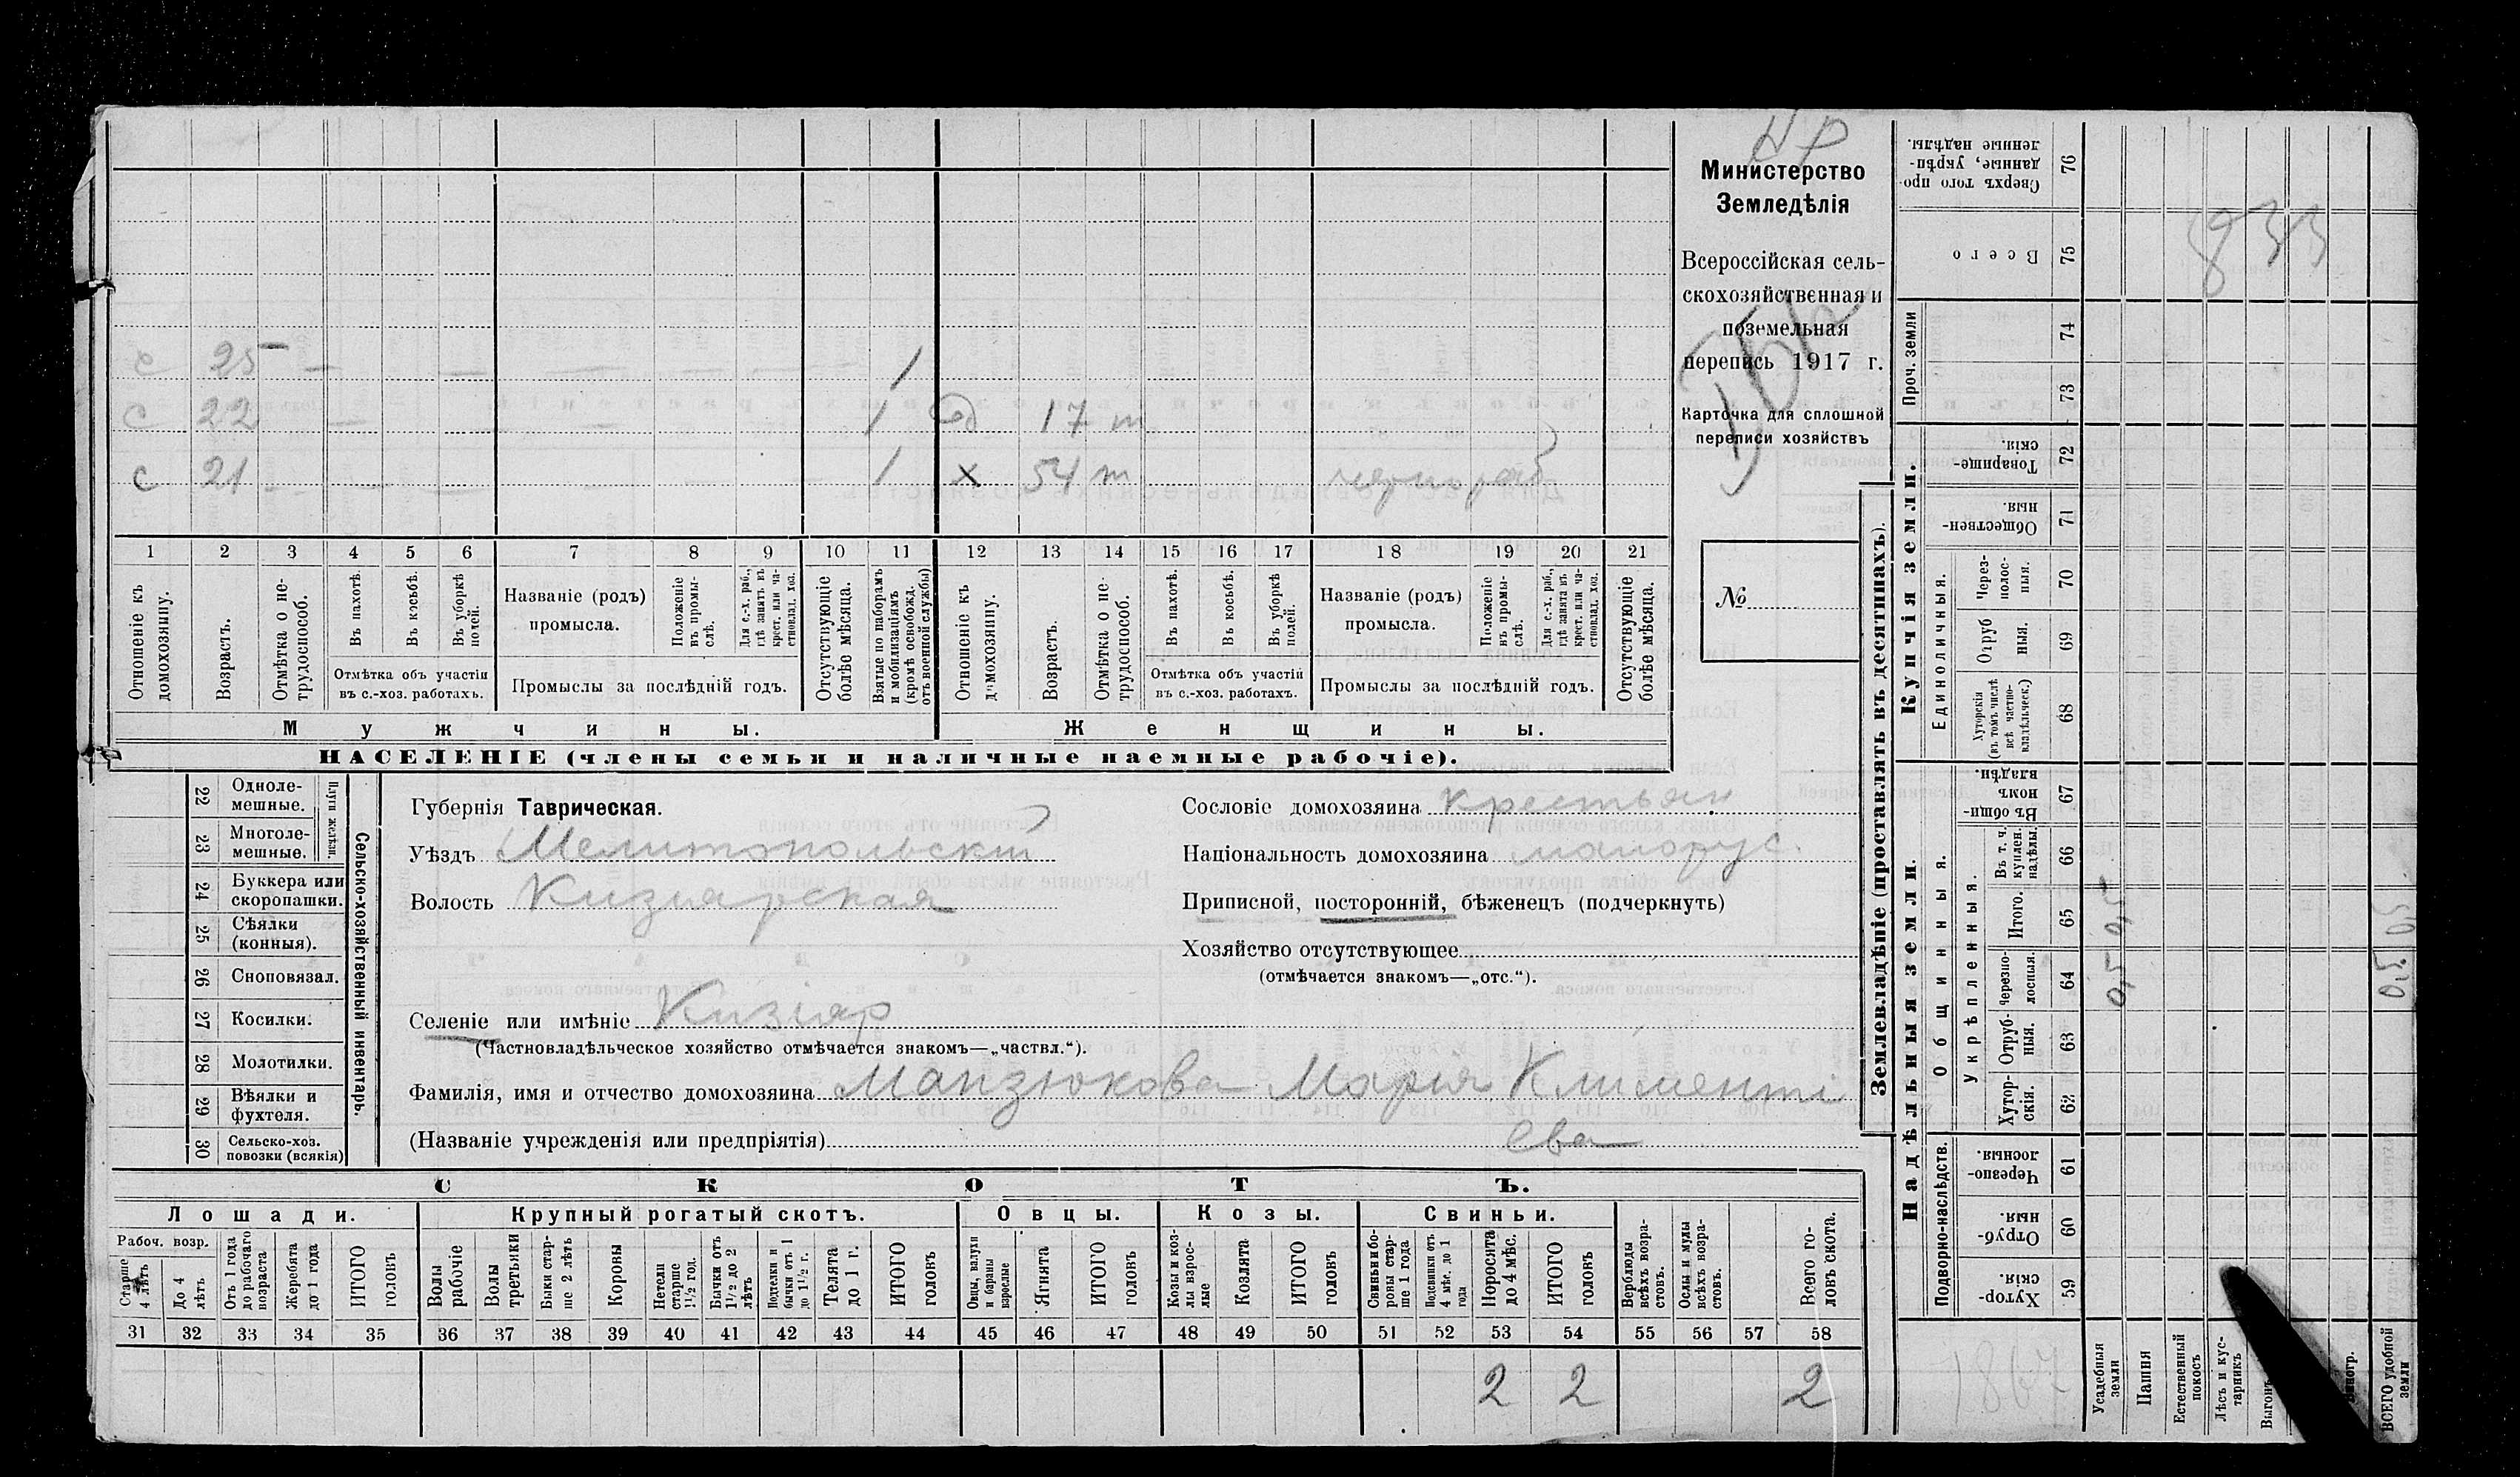 НР
Министерство
Земледѣлія
Всероссійская сель-
скохозяйственная и
поземельная
перепись 1917 г.
Карточка для сплошной
переписи хозяйствъ
№
с 25 — — — 1
с 22 — 1 17 т
с 21 — — — 1 х 54 т чернораб
1 2 3 4 5 6 7 8 9 10 11 12 13 14 15 16 17 18 19 20 21
Отношеніе къ домохозяину.
Возрастъ.
Отмѣтка о не-трудоспособ.
Въ пахотѣ.
Въ косьбѣ.
Въ уборкѣ полей.
Отмѣтка объ участіи
въ с.-хоз. работахъ.
Названіе (родъ)
промысла.
Положеніе въ промы-слѣ.
Для с.-х. раб., гдѣ занятъ въ крест. или ча-стновлад. хоз.
Промыслы за послѣдній годъ.
Отсутствующіе болѣе мѣсяца.
Взятые по наборамъ и мобилизаціямъ (кромѣ освобожд. отъ военной службы)
Отношеніе къ домохозяину.
Возрастъ.
Отмѣтка о не-трудоспособ.
Въ пахотѣ.
Въ косьбѣ.
Въ уборкѣ полей.
Отмѣтка объ участіи
въ с.-хоз. работахъ.
Названіе (родъ)
промысла.
Положеніе въ промы-слѣ.
Для с.-х. раб., гдѣ занята въ крест. или ча-стновлад. хоз.
Промыслы за послѣдній годъ.
Отсутствующіе болѣе мѣсяца.
Мужчины.
Женщины.
НАСЕЛЕНІЕ (члены семьи и наличные наемные рабочіе).
22 Одноле-мешные.
23 Многоле-мешные.
Плуги желѣзн.
24 Буккера или скоропашки.
25 Сѣялки (конныя).
26 Сноповязал.
27 Косилки.
28 Молотилки.
29 Вѣялки и фухтеля.
30 Сельско-хоз. повозки (всякія)
Сельско-хозяйственный инвентарь.
Губернія Таврическая.
Уѣздъ Мелитопольскій
Волость Кизиярская
Селеніе или имѣніе Кизіяр
(Частновладѣльческое хозяйство отмѣчается знакомъ—„частвл.“).
Фамилія, имя и отчество домохозяина Мапзюкова МарияКлименті
(Названіе учрежденія или предпріятія) ева
Сословіе домохозяина крестьян
Національность домохозяина малорус.
Приписной, посторонній, бѣженецъ (подчеркнуть)
Хозяйство отсутствующее
(отмѣчается знакомъ—„отс.“).
СКОТЪ.
Лошади.
Крупный рогатый скотъ.
Овцы.
Козы.
Свиньи.
Рабоч. возр.
Старше 4 лѣтъ
До 4 лѣтъ
Отъ 1 года до рабочаго возраста
Жеребята до 1 года
ИТОГО головъ
Волы рабочіе
Волы третьяки
Быки стар-ше 2 лѣтъ
Коровы
Нетели старше 1½ год.
Бычки отъ 1½ до 2 лѣтъ
Подтелки и бычки отъ 1 до 1½ г.
Телята до 1 г.
ИТОГО головъ
Овцы, валухи и бараны взрослые
Ягнята
ИТОГО головъ
Козы и коз-лы взрос-лые
Козлята
ИТОГО головъ
Свиньи и бо-ровы стар-ше 1 года
Подсвинки отъ 4 мѣс. до 1 года
Поросята до 4 мѣс.
ИТОГО головъ
Верблюды всѣхъ возра-стовъ.
Ослы и мулы всѣхъ возра-стовъ.
Всего го-ловъ скота.
31 32 33 34 35 36 37 38 39 40 41 42 43 44 45 46 47 48 49 50 51 52 53 54 55 56 57 58
2 2 2
Землевладѣніе (проставлять въ десятинахъ).
Купчія земли.
Надѣльныя земли.
Сверхъ того про-данные, укрѣп-ленные надѣлы. 76
Всего 75
Проч. земли
74
73
Товарище-скія. 72
Обществен-ныя. 71
Единоличныя.
Через-полос-ныя. 70
Отруб ныя. 69
Хуторскія (въ томъ числѣ всѣ частно-владѣльческ.) 68
Общинныя.
Въ общи-номъ владѣн. 67
Въ т. ч. куплен. надѣлы. 66
Укрѣпленныя.
Итого. 65
Черезпо-лосныя. 64
Отруб-ныя. 63
Хутор-скія. 62
Подворно-наслѣдств.
Черезпо-лосныя. 61
Отруб-ныя. 60
Хутор-скія. 59
Усадебныя земли
Пашня
Естественный покосъ
Лѣсъ и кус-тарникъ
Выгонъ
ВСЕГО удобной земли
0,5 0,5
0,5 0,5
833
1867